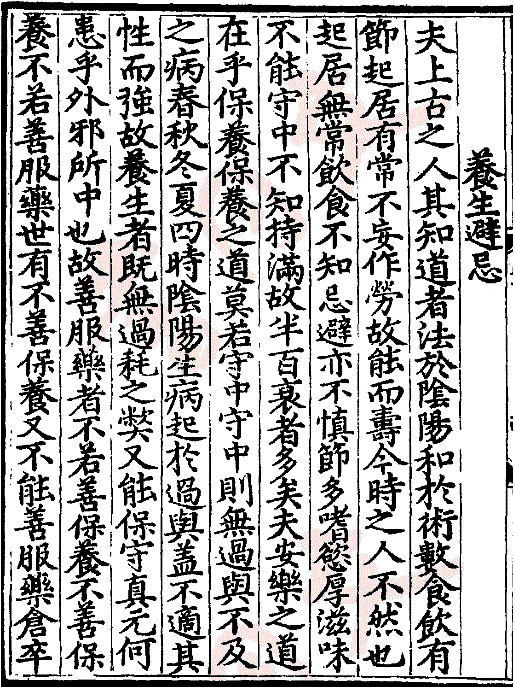 養生避忌
夫上古之人其知道者法於陰陽和於術數食飲有
節起居有常不妄作勞故能而壽今時之人不然也
起居無常飲食不知忌避亦不慎節多嗜慾厚滋味
不能守中不知持滿故半百衰者多矣夫安樂之道
在乎保養保養之道莫若守中守中則無過與不及
之病春秋冬夏四時陰陽生病起於過與盖不適其
性而強故養生者既無過耗之弊又能保守真元何
患乎外邪所中也故善服藥者不若善保養不善保
養不若善服藥世有不善保養又不能善服藥倉卒